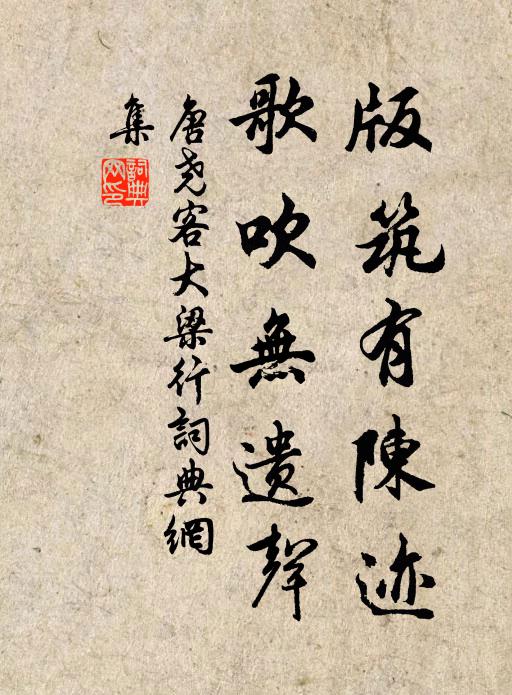 版筑有陳迹
歌吹無遺聲
唐尧客大梁行詞典網
集
詞典
网印